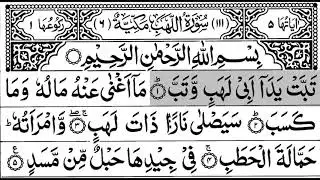 اٰیَاتُهَا ۵ (۱۱۱) سُوْرَةُ اللَّهَبِ مَكِّيَّةٌ (٦) رُكُوْعُهَا ۱
بِسْمِ اللهِ الرَّحْمٰنِ الرَّحِيْمِ
تَبَّتْ يَدَاۤ اَبِيْ لَهَبٍ وَّتَبَّ ۱ مَاۤ اَغْنٰى عَنْهُ مَالُهٗ وَمَا
كَسَبَ ۲ سَيَصْلٰى نَارًا ذَاتَ لَهَبٍ ۳ وَّامْرَاَتُهٗ ؕ
حَمَّالَةَ الْحَطَبِ ۴ فِيْ جِيْدِهَا حَبْلٌ مِّنْ مَّسَدٍ ۵